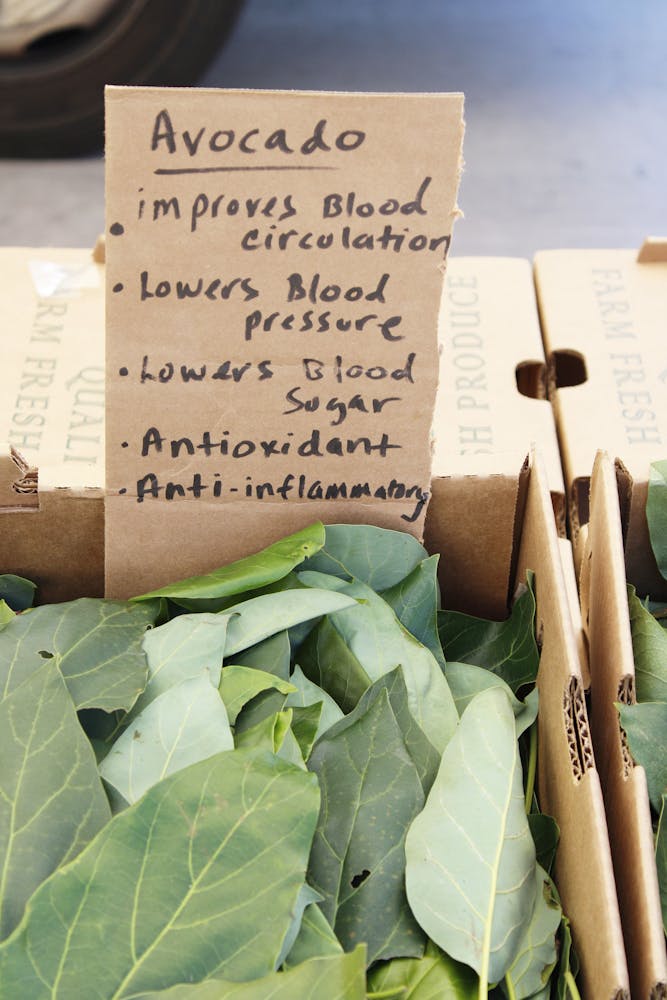 Avocado
• improves Blood
circulation
• Lowers Blood
pressure
• Lowers Blood
Sugar
• Antioxidant
• Anti-inflammatory
RM FRESH
QUALI
H PRODUCE
FARM FRESH